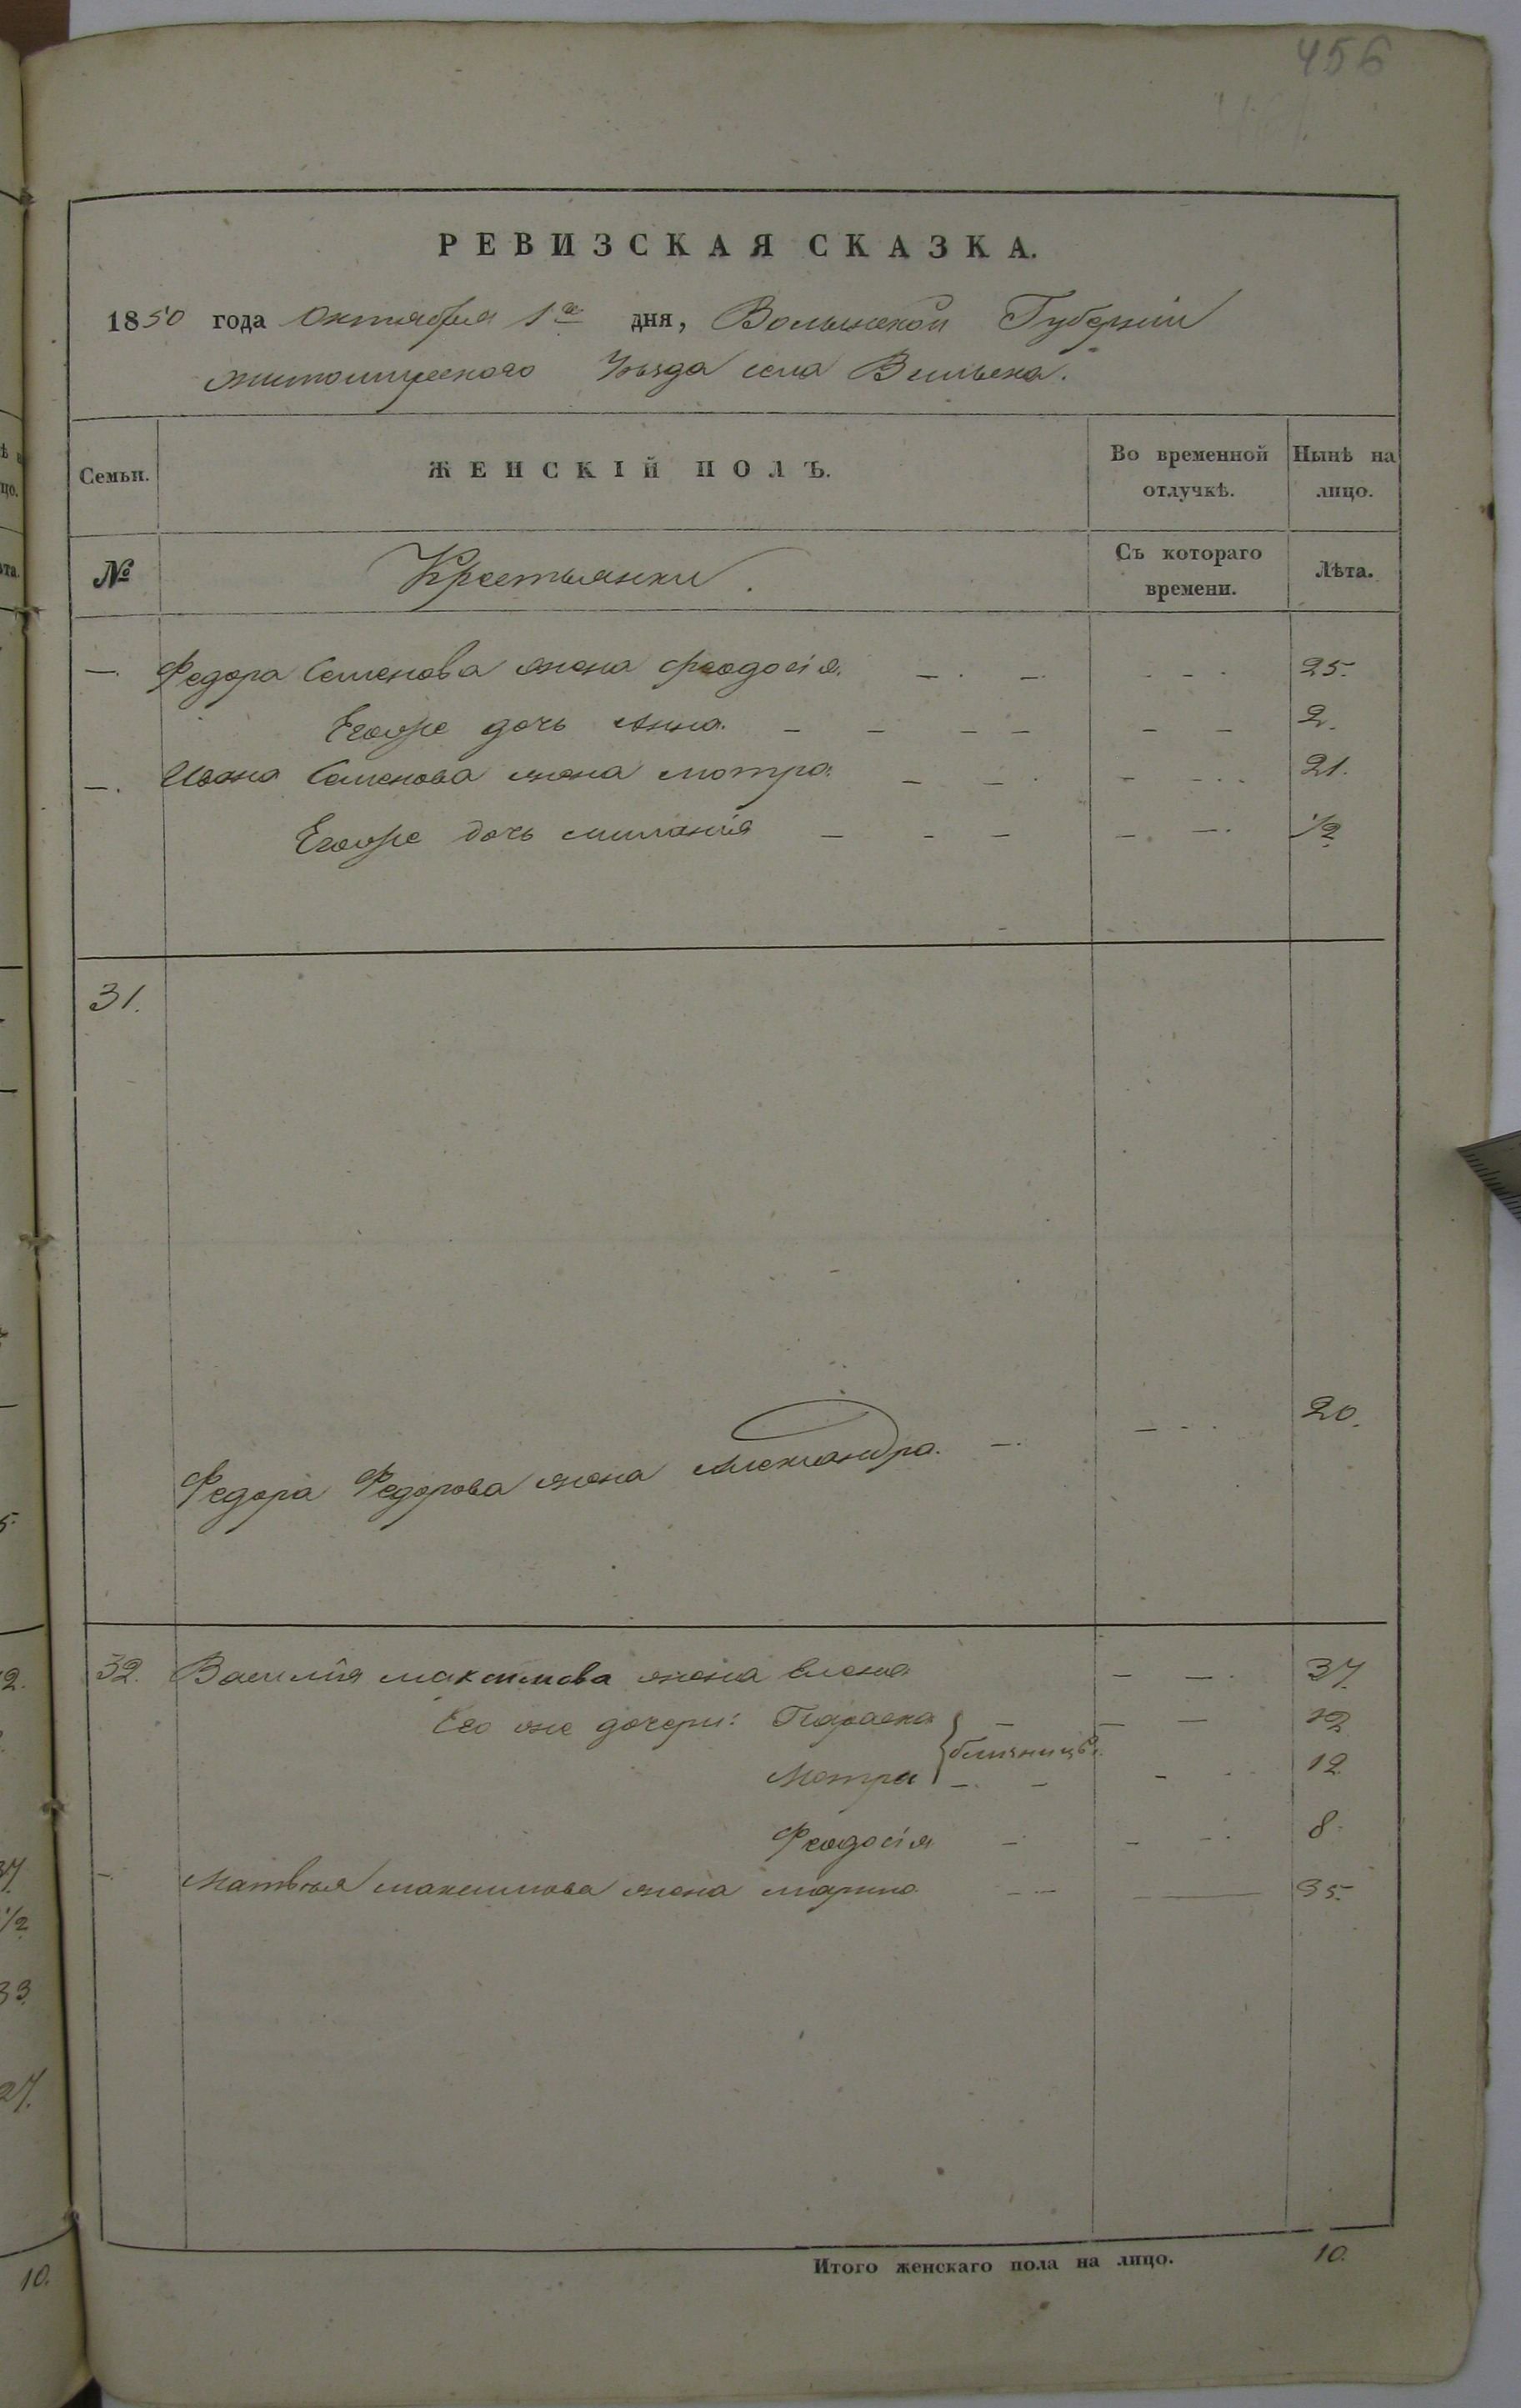 456
РЕВИЗСКАЯ СКАЗКА.
1850 года Октября 1го дня, Волынской Губерніи
Житомирского Уѣзда села Вильска.
Семьи. ЖЕНСКІЙ ПОЛЪ. Во временной отлучкѣ. Нынѣ на лицо.
№ Крестьянки. Съ котораго времени. Лѣта.
—. Федора Семенова жена Феодосія. — . — . - - . 25.
Егоже дочь Анна. — — — — — — 2.
—. Ивана Семенова жена Мотра. — — . — - . . 21.
Егоже дочь Миланія — - — — . — . 1/2
31.
Федора Федорова жена Александра. — . — - . 20.
32. Василія Максимова жена Елена — — . 37.
Его же дочери: Параска — — — 12
близницы.
Мотра — . — - - . 12.
Феодосія — - - . 8.
—. Матвѣя Максимова жена Марина — — — 35.
Итого женскаго пола на лицо. 10.
ѣ н
цо.
ѣта.
5.
2.
37.
1/2
33.
27.
10.